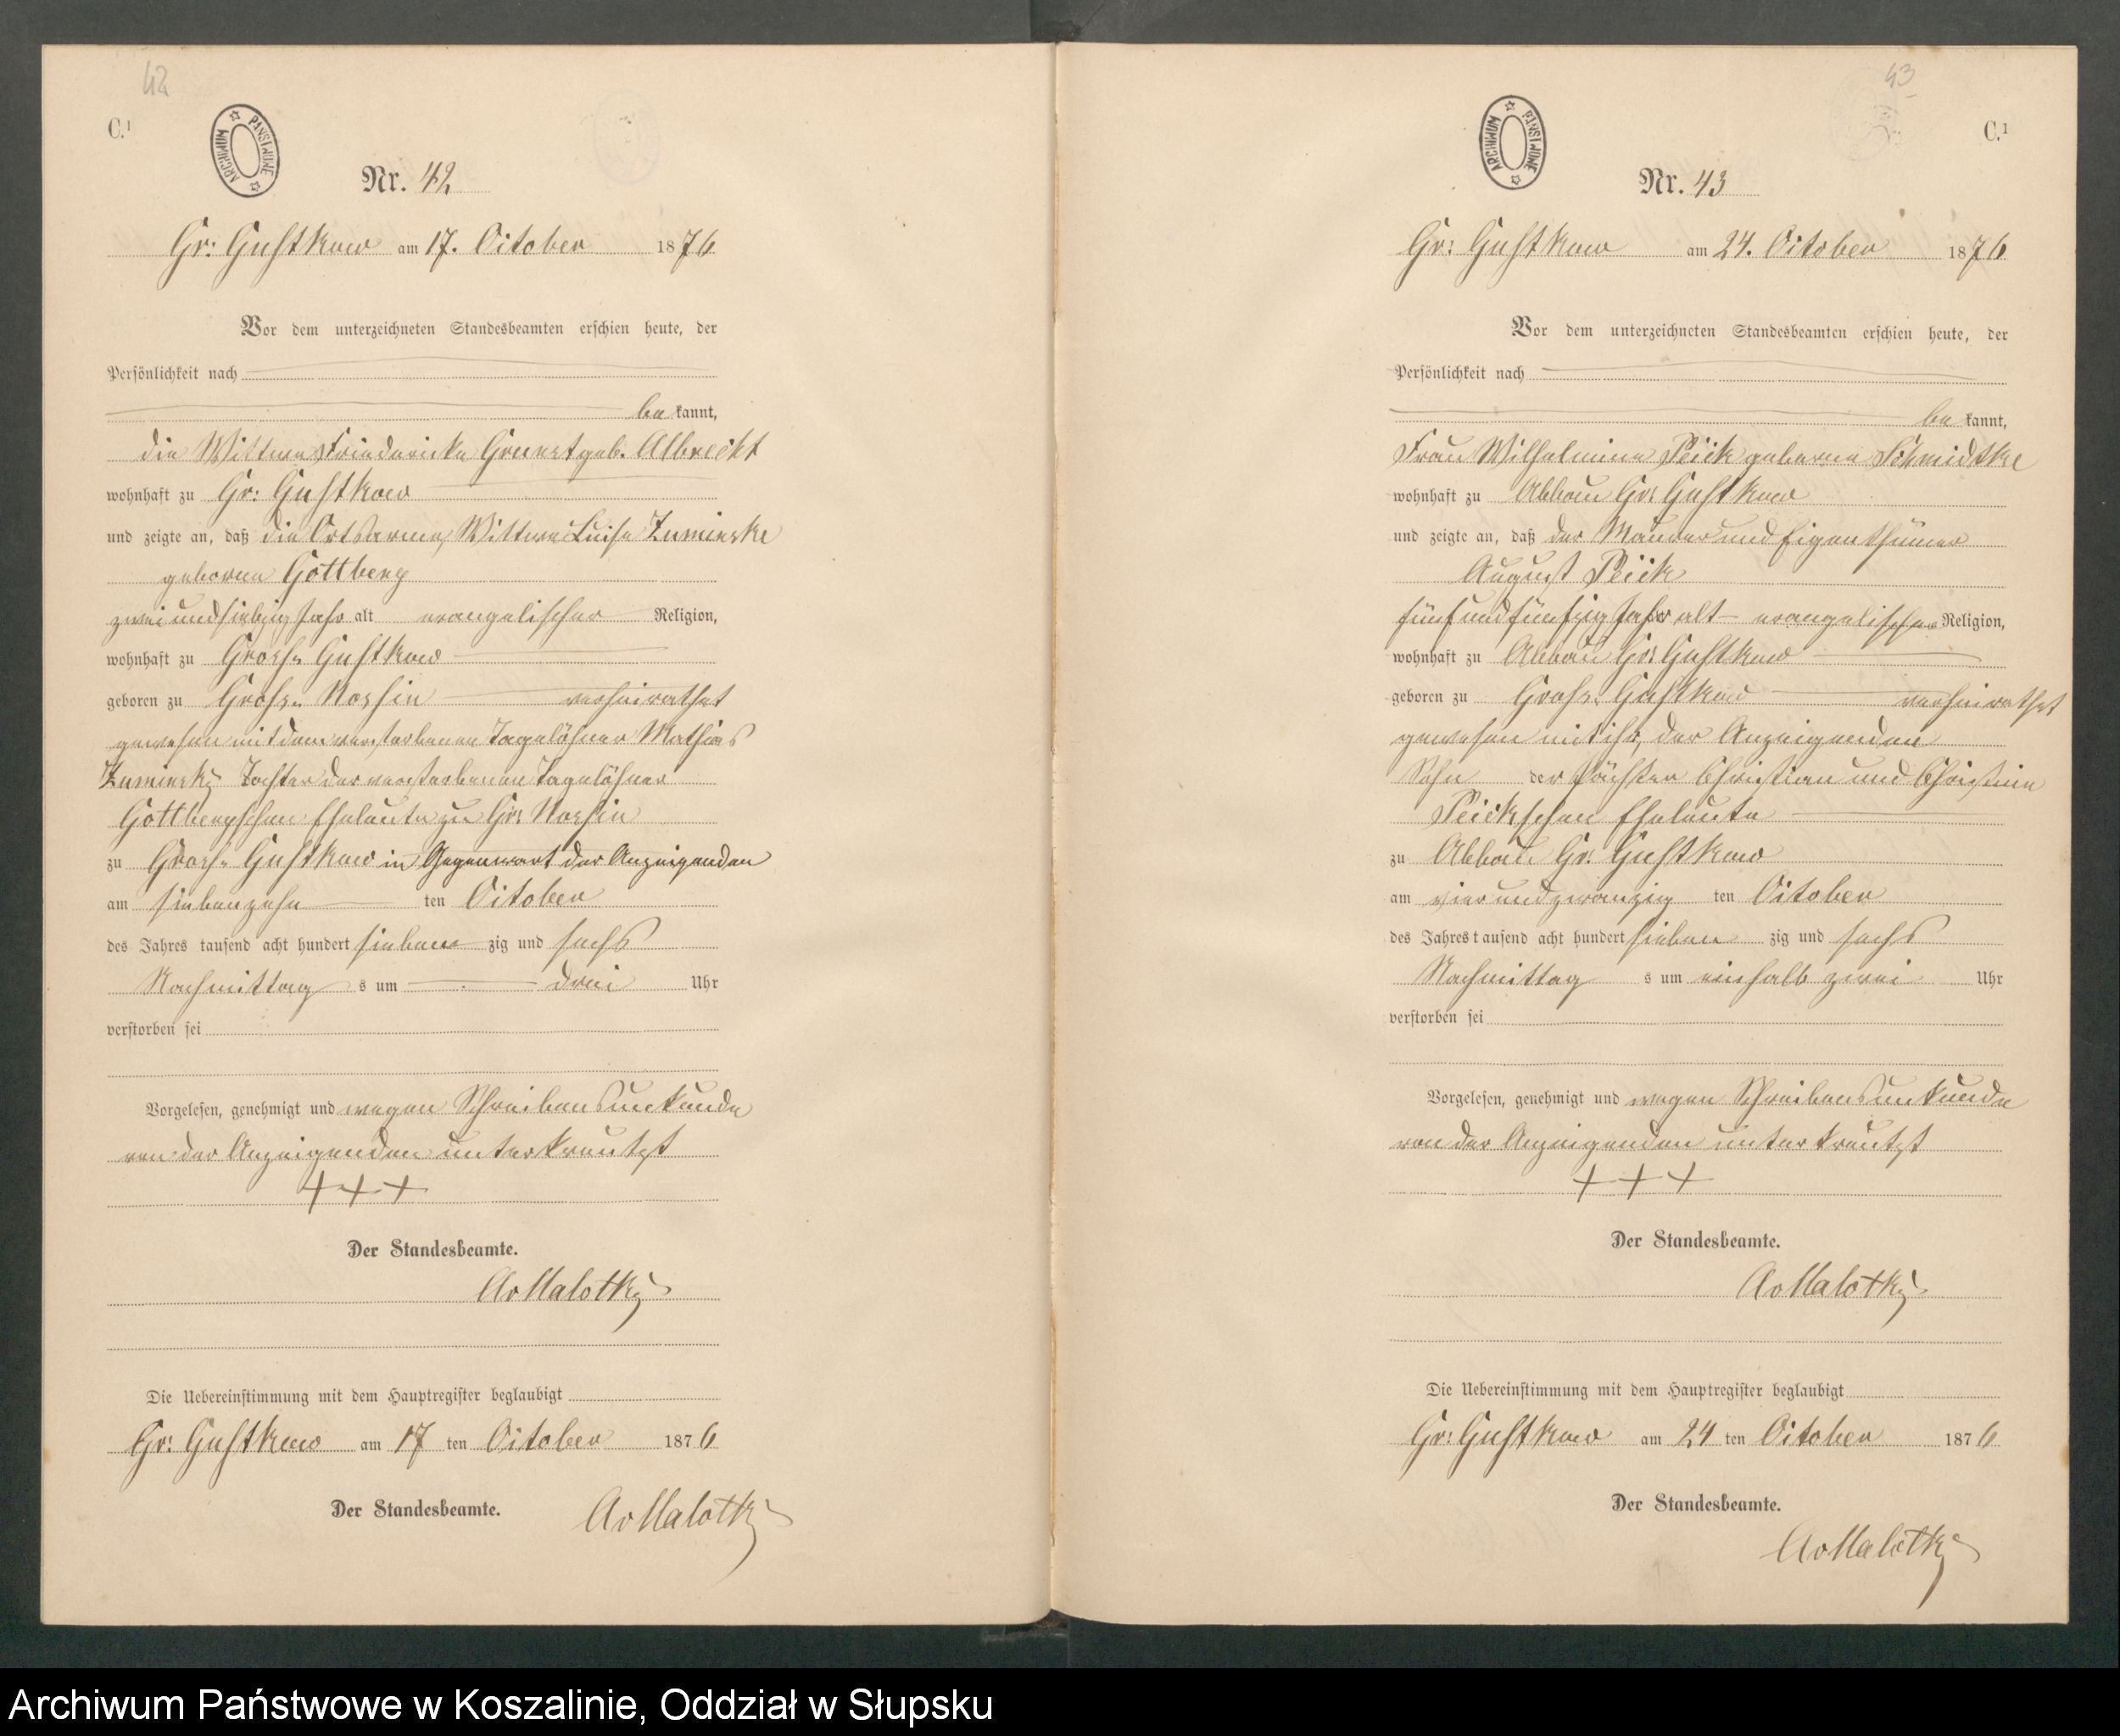 42
C.1
ARCHIWUM PAŃSTWOWE
Nr. 42
Gr: Gustkow am 17. October 1876
Vor dem unterzeichneten Standesbeamten erschien heute, der
Persönlichkeit nach
be kannt,
die Wittwe Friedericke Grunst geb. Albrecht
wohnhaft zu Gr: Gustkow
und zeigte an, daß die Ortsarme, Wittwe Luise Zuminske
geborne Gottberg
zwei und siebzig Jahr alt evangelischer Religion,
wohnhaft zu Gross Gustkow
geboren zu Gross Nossin verheirathet
gewesen mit dem verstorbenen Tagelöhner Mathias
Zuminsky Tochter der verstorbenen Tagelöhner
Gottbergschen Eheleute zu Gr: Nossin
zu Gross Gustkow in Gegenwart der Anzeigenden
am siebenzehn ten October
des Jahres tausend acht hundert sieben zig und sechs
Nachmittag s um drei Uhr
verstorben sei
Vorgelesen, genehmigt und wegen Schreibensunkunde
von der Anzeigenden unterkreutzt
+ + +
Der Standesbeamte.
AvMalotky
Die Uebereinstimmung mit dem Hauptregister beglaubigt
Gr: Gustkow am 17 ten October 1876
Der Standesbeamte. AvMalotky
43
C.1
ARCHIWUM PAŃSTWOWE
Nr. 43
Gr: Gustkow am 24. October 1876
Vor dem unterzeichneten Standesbeamten erschien heute, der
Persönlichkeit nach
be kannt,
Frau Wilhelmine Peick geborne Schmidtke
wohnhaft zu Abbau Gr: Gustkow
und zeigte an, daß der Maurer und Eigenthümer
August Peick
fünf und fünfzig Jahr alt evangelischer Religion,
wohnhaft zu Abbau Gr: Gustkow
geboren zu Gross Gustkow verheirathet
gewesen mit ihr, der Anzeigenden
Sohn der Pächter Christian und Christine
Peickschen Eheleute
zu Abbau Gr: Gustkow
am vier und zwanzig ten October
des Jahres tausend acht hundert sieben zig und sechs
Nachmittag s um einhalb zwei Uhr
verstorben sei
Vorgelesen, genehmigt und wegen Schreibensunkunde
von der Anzeigenden unterkreutzt
+ + +
Der Standesbeamte.
AvMalotky
Die Uebereinstimmung mit dem Hauptregister beglaubigt
Gr: Gustkow am 24 ten October 1876
Der Standesbeamte.
AvMalotky
Archiwum Państwowe w Koszalinie, Oddział w Słupsku